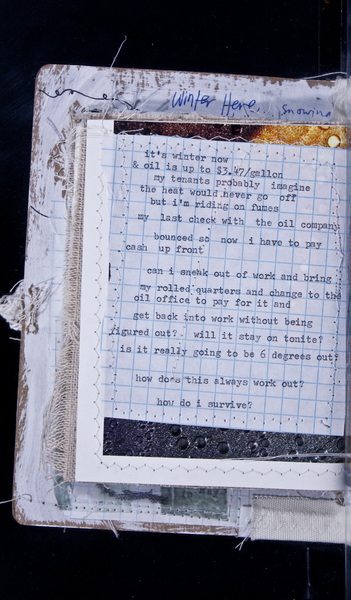 Winter Here. Snowing
it's winter now
& oil is up to $3.47/gallon
my tenants probably imagine
the heat would never go off
but i'm riding on fumes
my last check with the oil company
bounced so now i have to pay
cash up front
can i sneak out of work and bring
my rolled quarters and change to the
oil office to pay for it and
get back into work without being
figured out? will it stay on tonite?
is it really going to be 6 degrees out?
how does this always work out?
how do i survive?